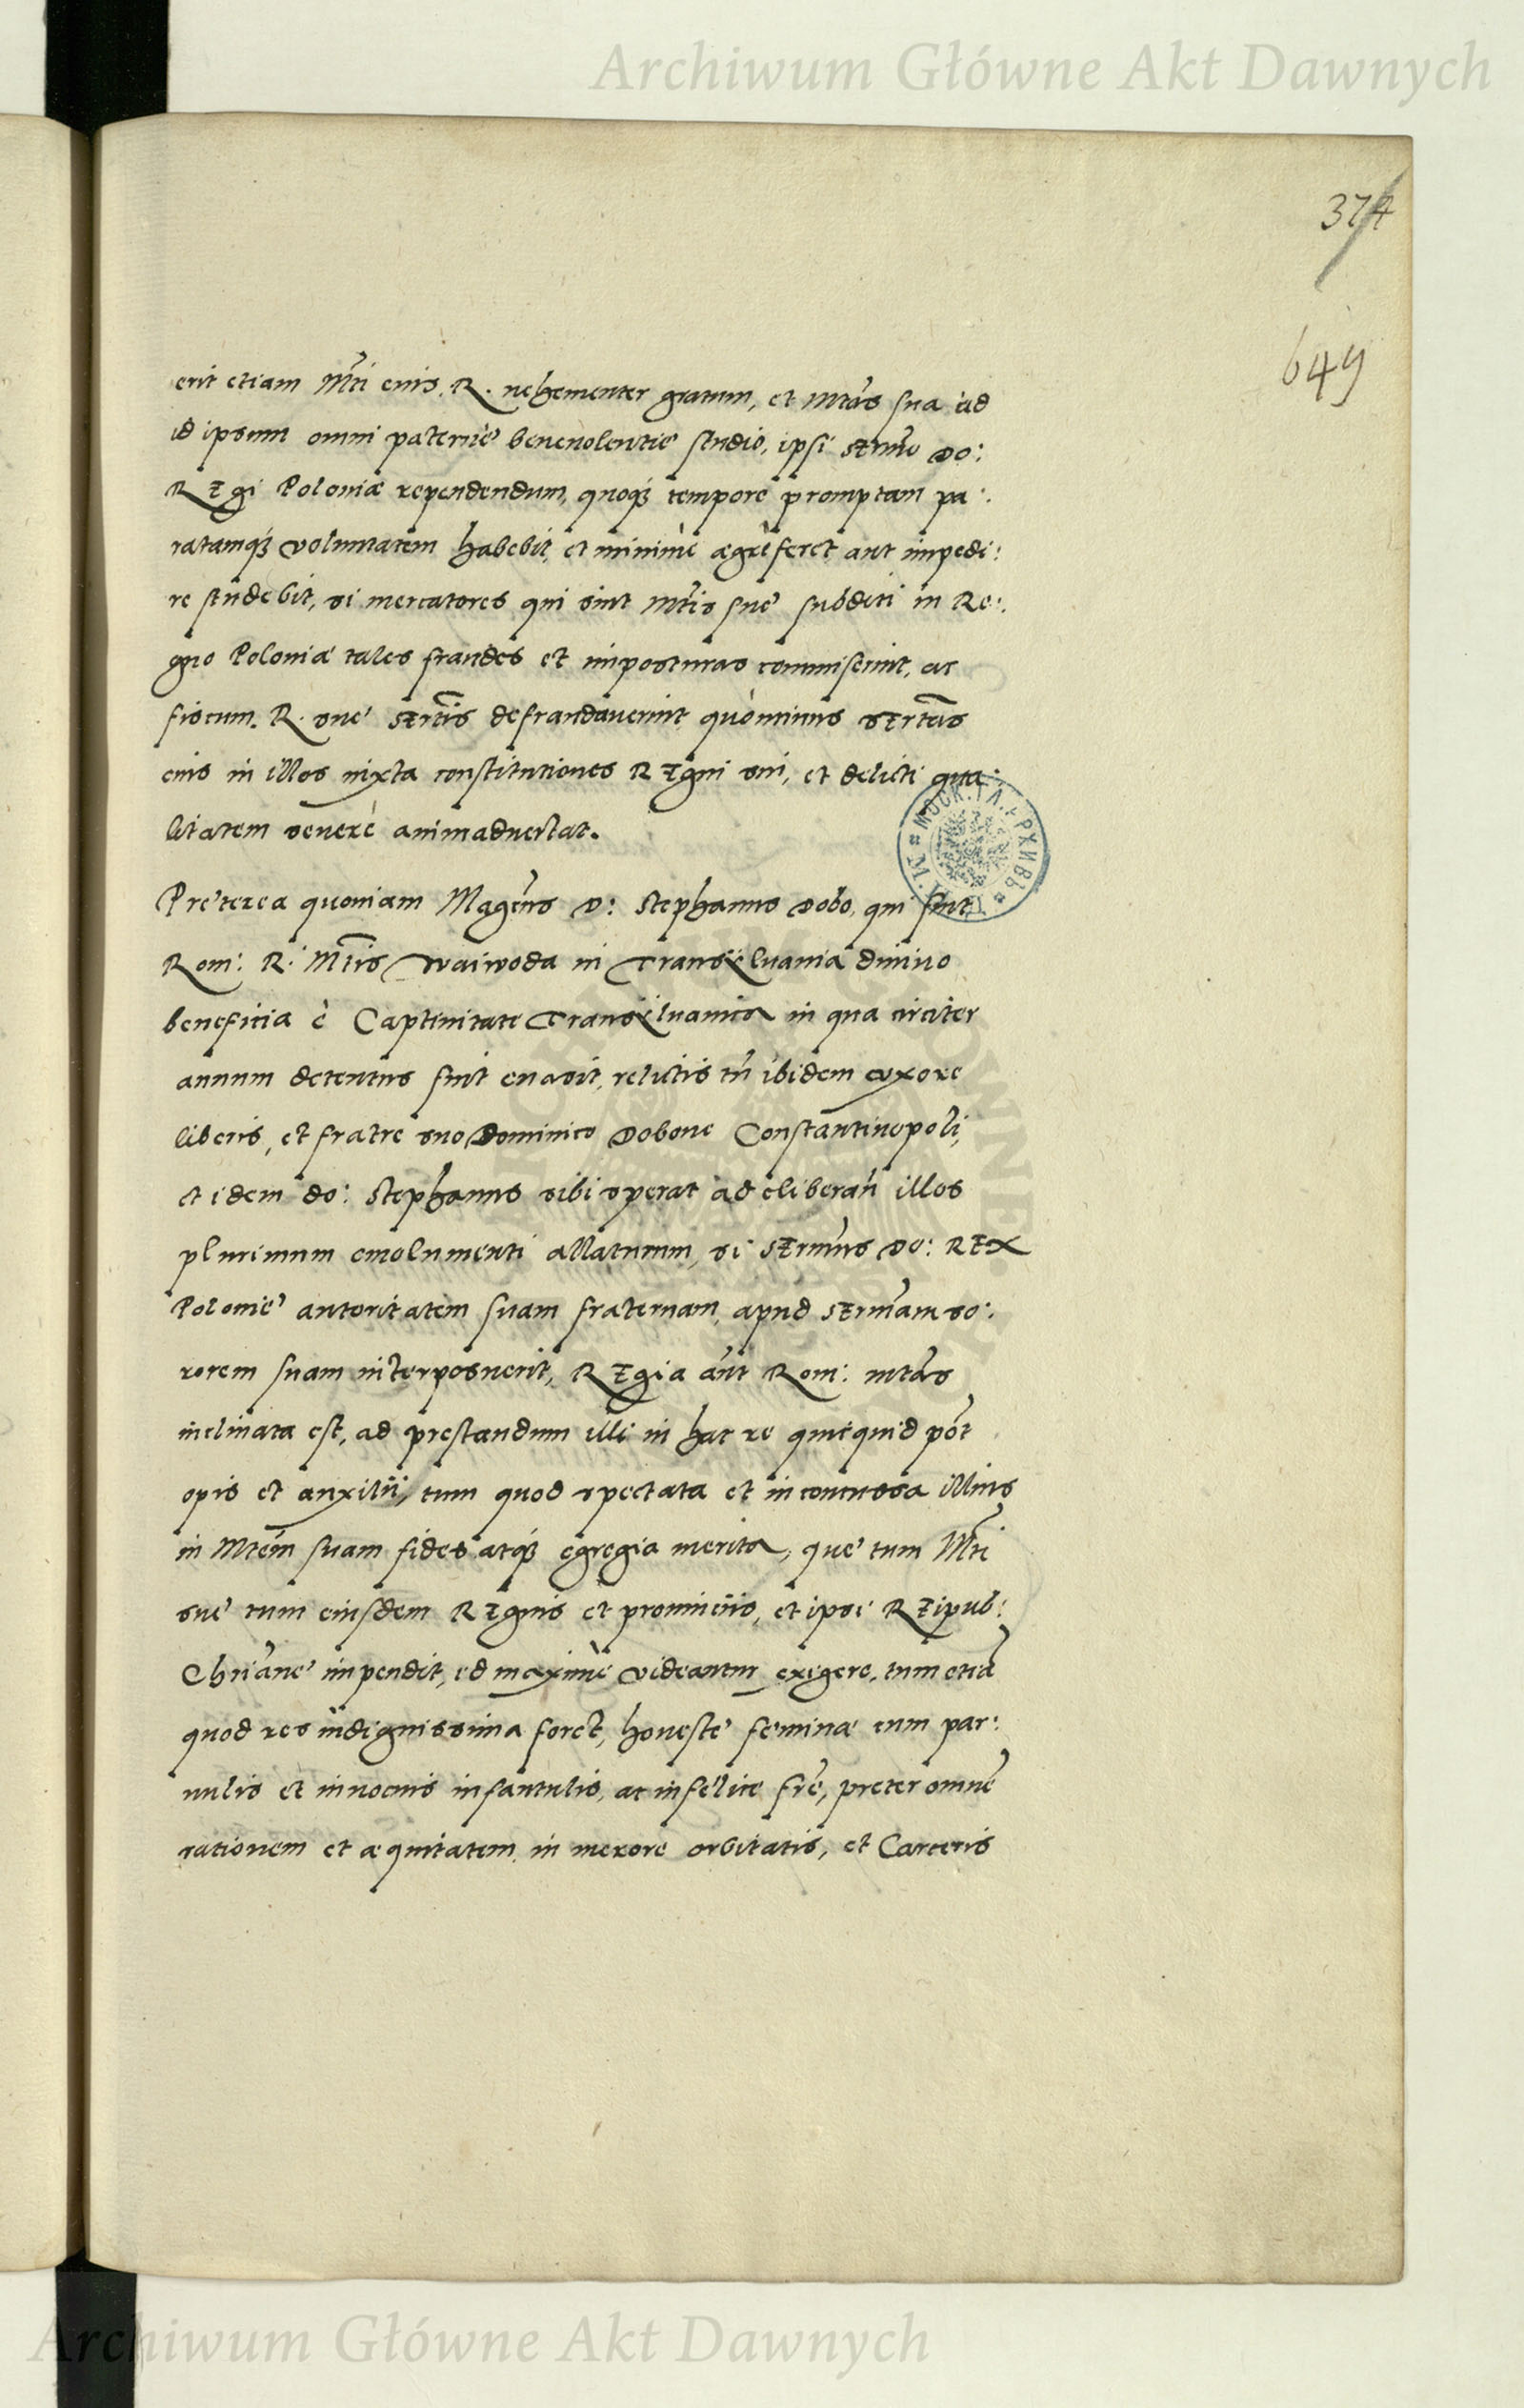 Archiwum Główne Akt Dawnych
374
649
erit etiam Mti eius. R. uehementer gratum, et Mtas sua ad
id ipsum omni paternę beneuolentię studio, ipsi Sermo Do:
REgi Poloniæ rependendum, quoqꝫ tempore promptam pa:
ratamqꝫ voluntatem habebit, et minimè ægrè feret aut impedi:
re studebit, si mercatores qui sint Mtis suę subditi in Re:
gno Poloniæ tales fraudes et imposturas commiserint, ac
fiscum. R. suę SErtis defraudauerint quòminus SErtas
eius in illos iuxta constitutiones REgni sui, et delicti qua:
litatem seuerè animaduertat.
Pręterea quoniam Magcus D: Stephanus Dobo, qui fuit
Rom: R. Mtis Waiwoda in Transÿluania diuino
beneficia è Captiuitate Transÿluanica in qua circiter
annum detentus fuit euasit, relictis tn̄ ibidem vxore
liberis, et fratre suo Dominico Dobone Constantinopoli,
et idem do: Stephanus sibi sperat ad eliberan̄ illos
plurimum emolumenti allaturum, si SErmus Do: REX
Polonię autoritatem suam fraternam, apud SErmam so:
rorem suam interposuerit, REgia aūt Rom: mtas
inclinata est, ad prestandum illi in hac re quicquid pot
opis et auxilii, tum quod spectata et inconcussa illius
in Mtem suam fides atqꝫ egregia merita, quę tum Mti
suę tum eiusdem REgnis et prouinciis, et ipsi REipub:
Chrianę impendit, id maximè videantur exigere, tum etiā
quod res indignissima foret, honestę feminæ cum par:
uulis et innocuis infantulis, ac infelice fre, preter omnē
rationem et æquitatem in merore orbitatis, et Carceris
Archiwum Główne Akt Dawnych